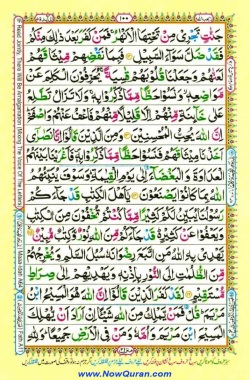 ١٠٠
جَنّٰتٍ تَجْرِیْ مِنْ تَحْتِهَا الْاَنْهٰرُ ۚ فَمَنْ كَفَرَ بَعْدَ ذٰلِكَ مِنْكُمْ
فَقَدْ ضَلَّ سَوَآءَ السَّبِیْلِ فَبِمَا نَقْضِهِمْ مِّیْثَاقَهُمْ
لَعَنّٰهُمْ وَجَعَلْنَا قُلُوْبَهُمْ قٰسِیَةً ۚ یُحَرِّفُوْنَ الْكَلِمَ عَنْ
مَّوَاضِعِهٖ ۙ وَنَسُوْا حَظًّا مِّمَّا ذُكِّرُوْا بِهٖ ۚ وَلَا تَزَالُ تَطَّلِعُ
عَلٰی خَآئِنَةٍ مِّنْهُمْ اِلَّا قَلِیْلًا مِّنْهُمْ فَاعْفُ عَنْهُمْ وَاصْفَحْ ؕ
اِنَّ اللّٰهَ یُحِبُّ الْمُحْسِنِیْنَ وَمِنَ الَّذِیْنَ قَالُوْۤا اِنَّا نَصٰرٰۤی
اَخَذْنَا مِیْثَاقَهُمْ فَنَسُوْا حَظًّا مِّمَّا ذُكِّرُوْا بِهٖ ۪ فَاَغْرَیْنَا بَیْنَهُمُ
الْعَدَاوَةَ وَالْبَغْضَآءَ اِلٰی یَوْمِ الْقِیٰمَةِ ؕ وَسَوْفَ یُنَبِّئُهُمُ
اللّٰهُ بِمَا كَانُوْا یَصْنَعُوْنَ یٰۤاَهْلَ الْكِتٰبِ قَدْ جَآءَكُمْ
رَسُوْلُنَا یُبَیِّنُ لَكُمْ كَثِیْرًا مِّمَّا كُنْتُمْ تُخْفُوْنَ مِنَ الْكِتٰبِ
وَیَعْفُوْا عَنْ كَثِیْرٍ ؕ قَدْ جَآءَكُمْ مِّنَ اللّٰهِ نُوْرٌ وَّكِتٰبٌ مُّبِیْنٌ
یَّهْدِیْ بِهِ اللّٰهُ مَنِ اتَّبَعَ رِضْوَانَهٗ سُبُلَ السَّلٰمِ وَیُخْرِجُهُمْ
مِّنَ الظُّلُمٰتِ اِلَی النُّوْرِ بِاِذْنِهٖ وَیَهْدِیْهِمْ اِلٰی صِرَاطٍ
مُّسْتَقِیْمٍ لَقَدْ كَفَرَ الَّذِیْنَ قَالُوْۤا اِنَّ اللّٰهَ هُوَ الْمَسِیْحُ ابْنُ
مَرْیَمَ ؕ قُلْ فَمَنْ یَّمْلِكُ مِنَ اللّٰهِ شَیْـًٔا اِنْ اَرَادَ اَنْ یُّهْلِكَ
الْمَسِیْحَ ابْنَ مَرْیَمَ وَاُمَّهٗ وَمَنْ فِی الْاَرْضِ جَمِیْعًا ؕ وَلِلّٰهِ
www.NowQuran.com